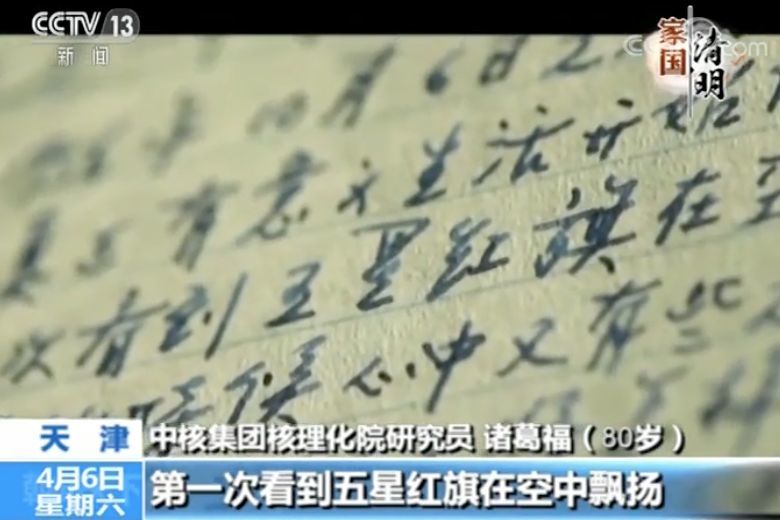 CCTV 13
新闻
家国
清明
com
月6日
有意义生活开始
次看到五星红旗在空
时候心中又有些
天津
中核集团核理化院研究员 诸葛福（80岁）
4月6日
星期六
第一次看到五星红旗在空中飘扬